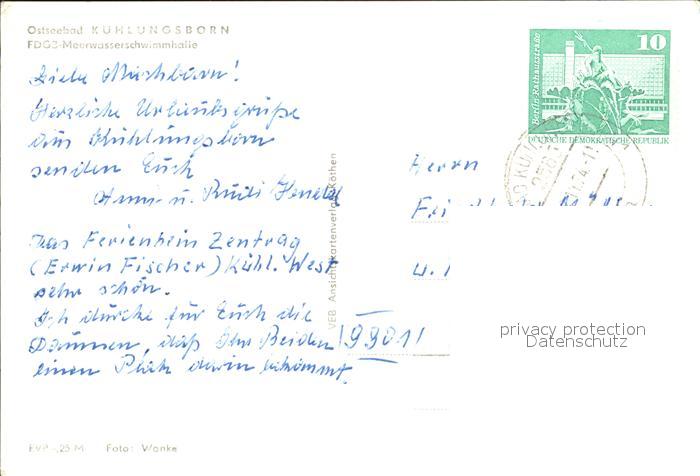 Ostseebad KÜHLUNGSBORN
FDGB-Meerwasserschwimmhalle
Liebe Nachbarn!
Herzliche Urlaubsgrüße
aus Kühlungsborn
senden Euch
Anni u. Rudi
Das Ferienheim Zentrag
(Erwin Fischer) Kühl. West
sehr schön.
Ich drücke für Euch die
Daumen, daß Ihr Beiden
einen Platz darin bekommt.
VEB Ansichtkartenverlag Köthen
10
Berlin, Rathausstraße
DEUTSCHE DEMOKRATISCHE REPUBLIK
Herrn
9901
privacy protection
Datenschutz
EVP -,25 M Foto: Wanke